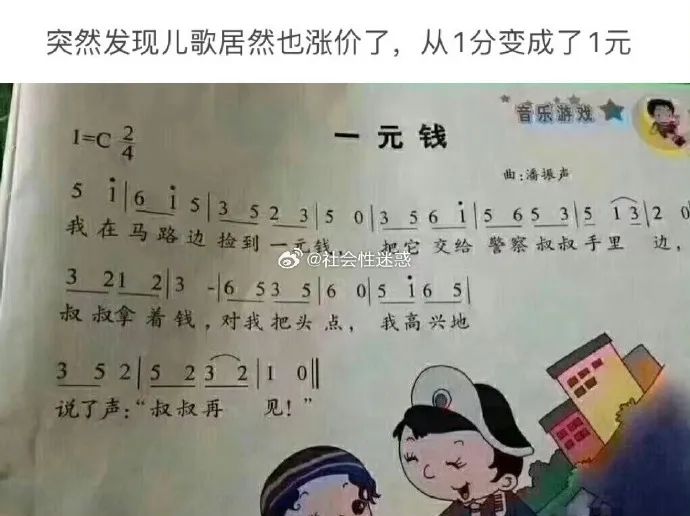 突然发现儿歌居然也涨价了，从1分变成了1元
音乐游戏
1=C 2/4
一元钱
曲:潘振声
5 i̇ | 6 i̇ 5 | 3 5 2 3 | 5 0 | 3 5 6 i̇ | 5 6 5 3 | 5 1 3 | 2 0
我在马路边捡到一元钱， 把它交给警察叔叔手里边，
@社会性迷惑
3 2 1 2 | 3 - | 6 5 3 5 | 6 0 | 5 i̇ 6 5 |
叔叔拿着钱，对我把头点， 我高兴地
3 5 2 | 5 2 3 2 | 1 0 ||
说了声:“叔叔再见！”